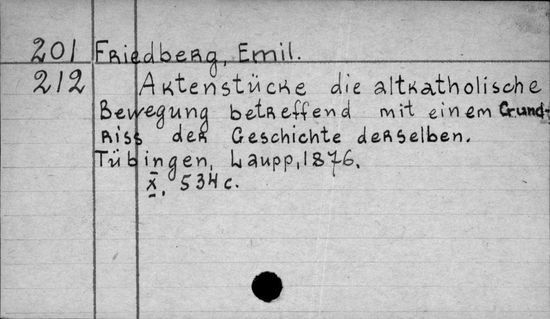 201 Friedberg, Emil.
212 Aktenstücke die altkatholische
Bewegung betreffend mit einem Grund-
riss der Geschichte derselben.
Tübingen, Laupp, 1876.
X, 534 c.